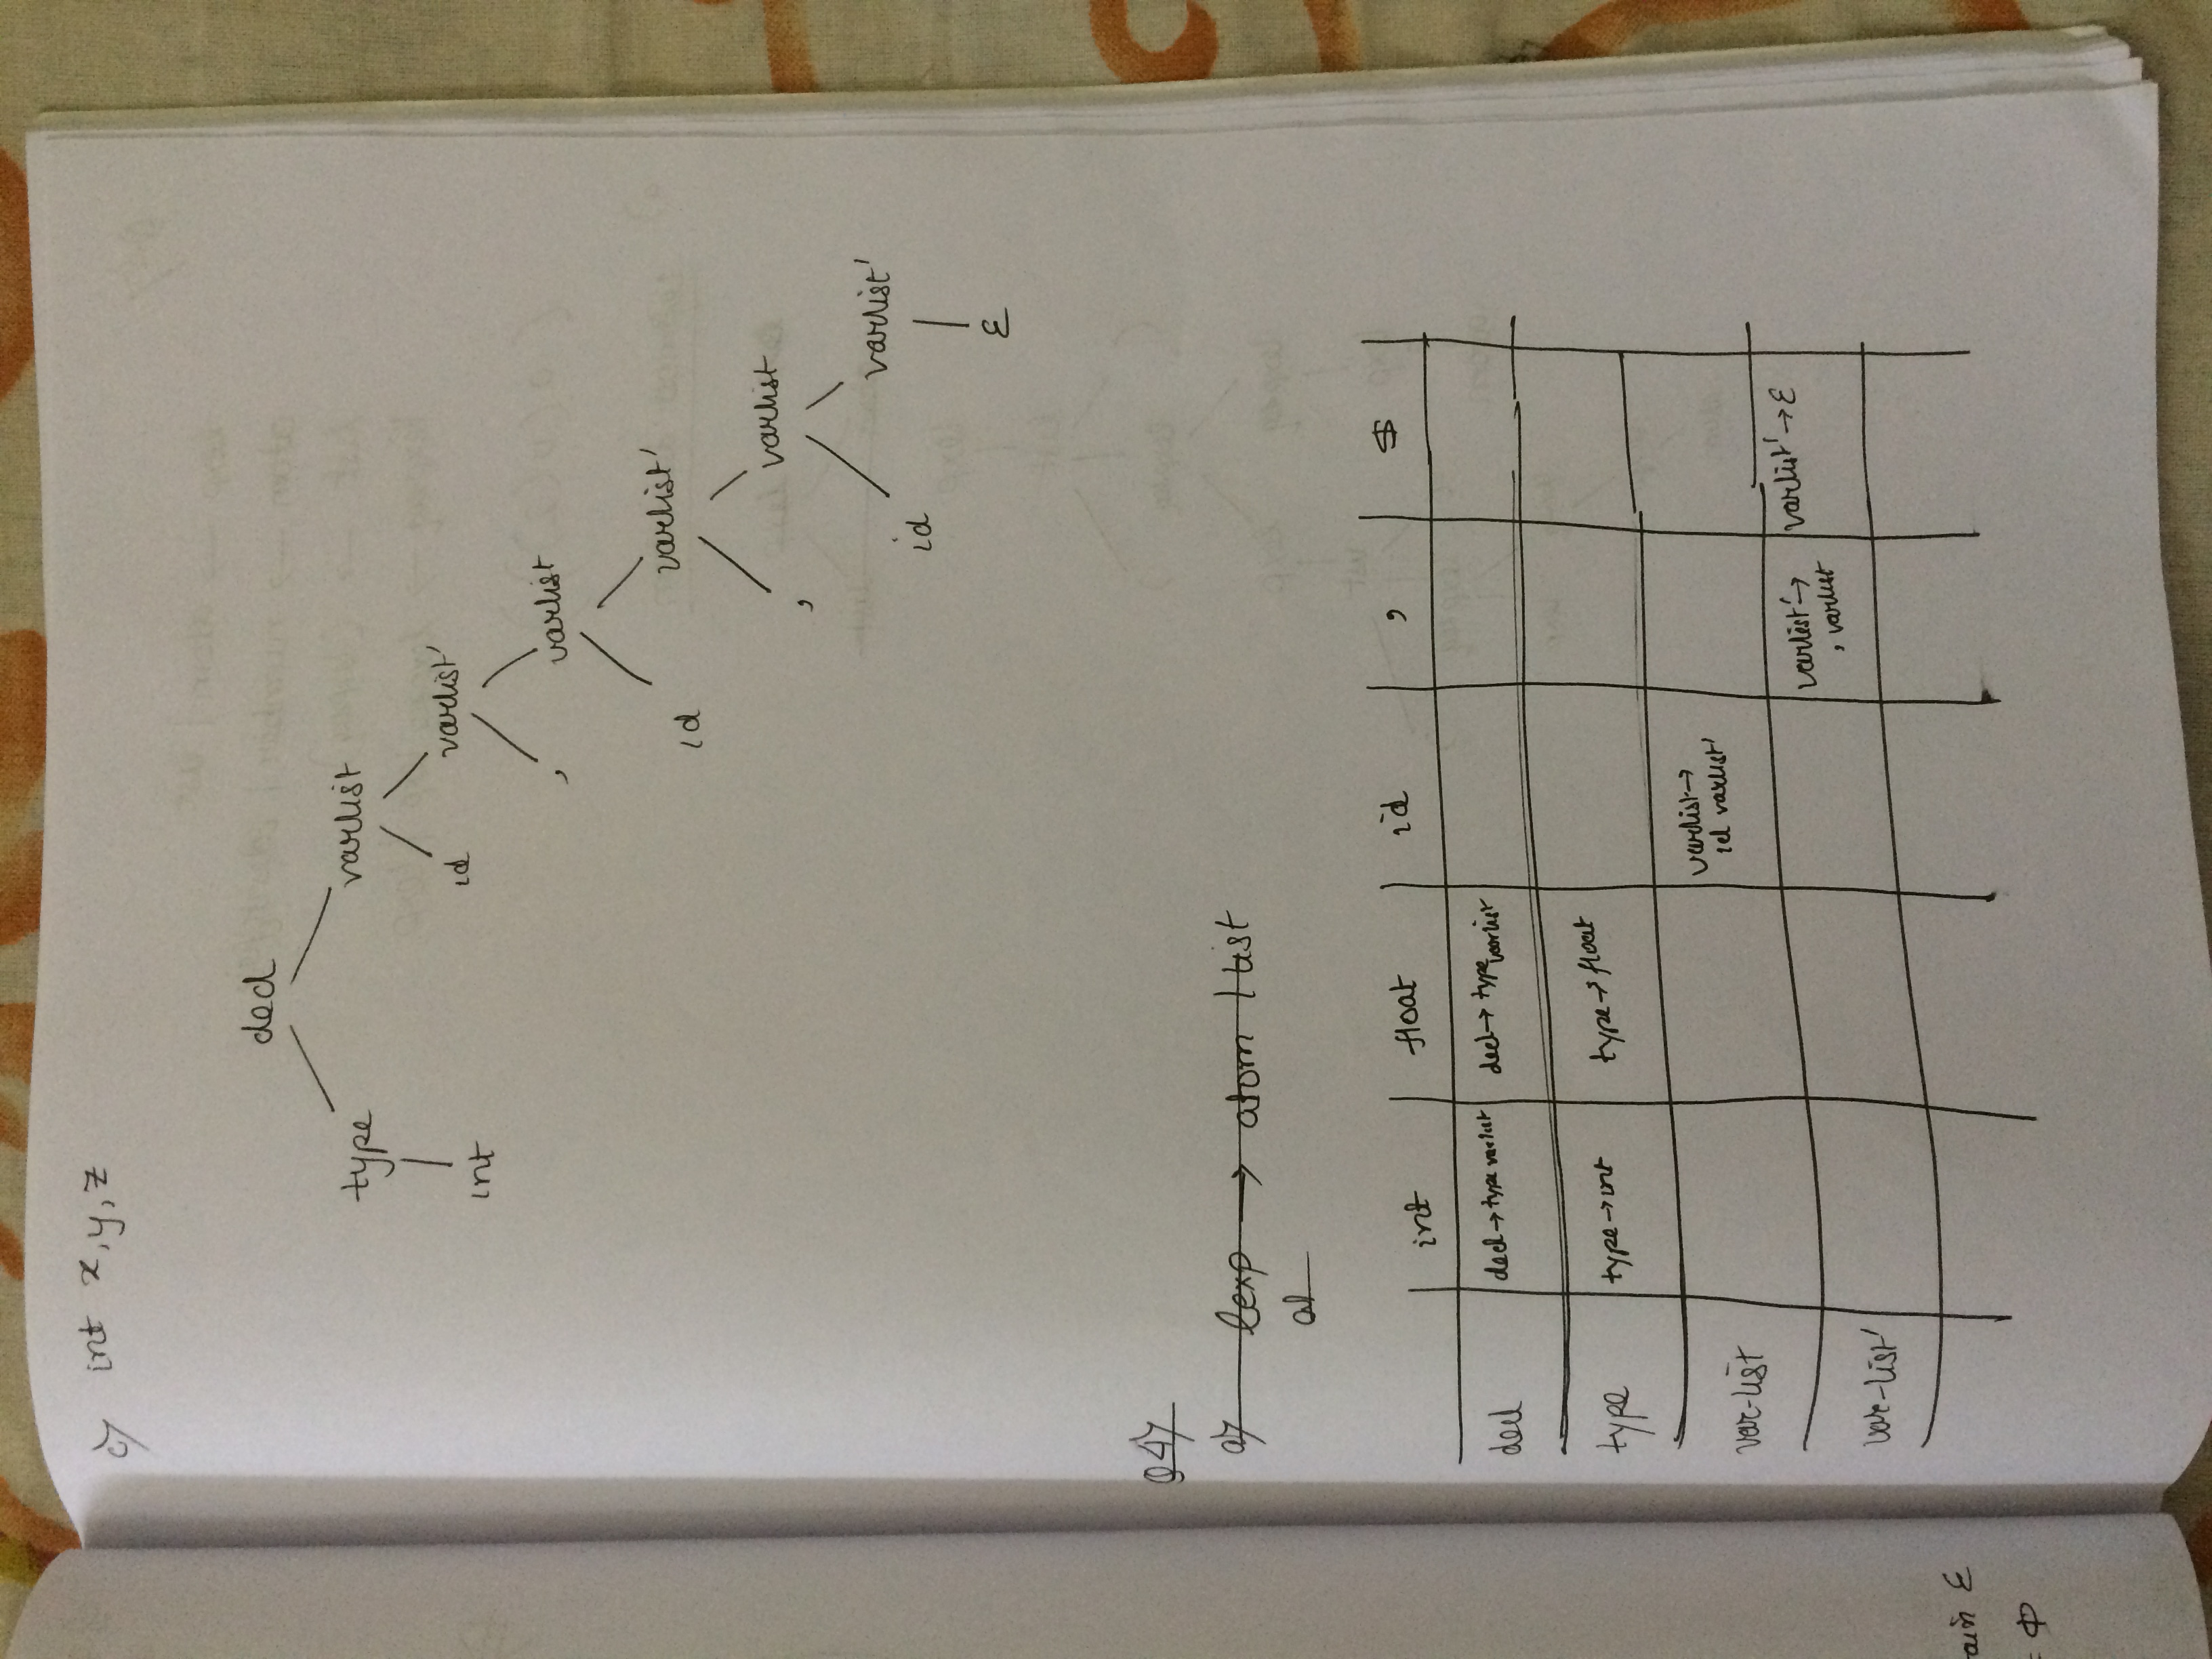 c) int x,y,z
decl
type varlist
int id varlist'
, varlist
id varlist'
, varlist
id varlist'
ε
Q4)
a) lexp → atom | list
al
int float id , $
decl decl→type varlist decl→ type varlist
type type→int type→float
var-list varlist→ id varlist'
var-list' varlist'→ , varlist varlist'→ε
ain ε
= Φ